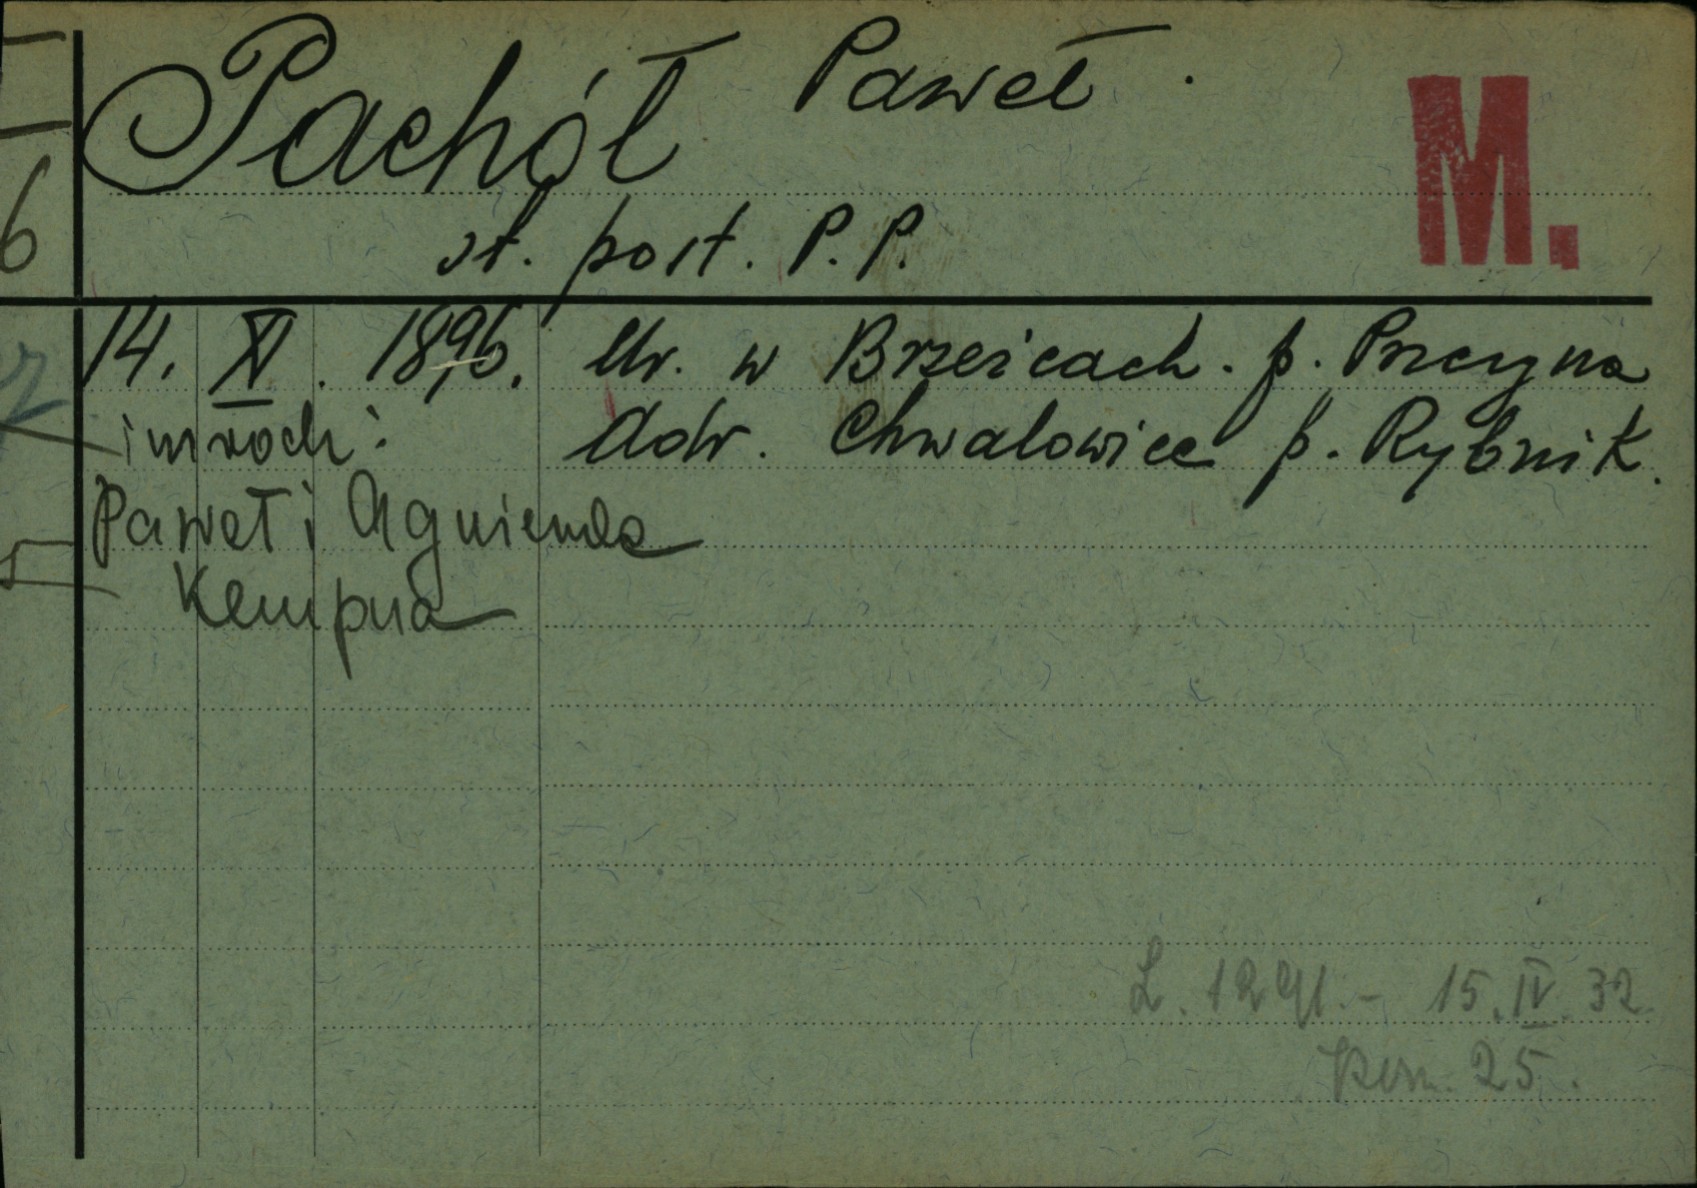 Pachół Paweł.
M.
st. post. P.P.
6
14. XI. 1896. Ur. w Brzeźcach. p. Pszczyna
im rodz: Adr. Chwałowice p. Rybnik.
Paweł i Agnieszka
Kempna
L. 1291.- 15.IV.32
Rom. 25.